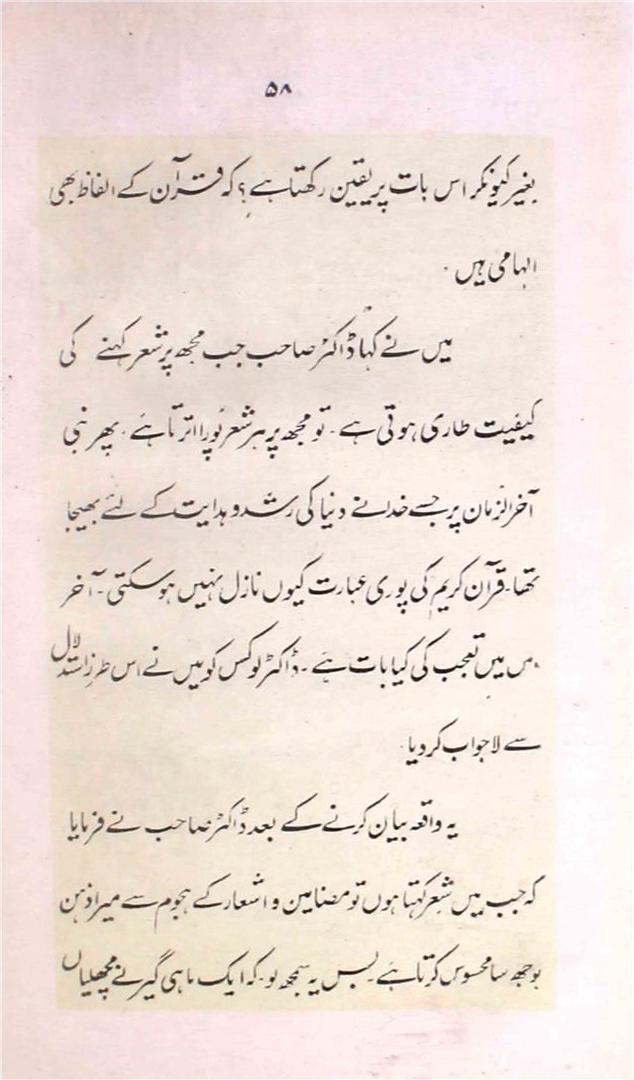 ۵۸
بغیر کیونکر اس بات پر یقین رکھتا ہے؟ کہ قرآن کے الفاظ بھی
الہامی ہیں۔
میں نے کہا ڈاکٹر صاحب جب مجھ پر شعر کہنے کی
کیفیت طاری ہوتی ہے۔ تو مجھ پر ہر شعر پُورا اترتا ہے۔ پھر نبی
آخرالزمان پر جسے خدا نے دنیا کی رشد و ہدایت کے لئے بھیجا
تھا۔ قرآن کریم کی پوری عبارت کیوں نازل نہیں ہوسکتی۔ آخر
اس میں تعجب کی کیا بات ہے۔ ڈاکٹر لوکس کو میں نے اس طرزِ استدلال
سے لاجواب کر دیا۔
یہ واقعہ بیان کرنے کے بعد ڈاکٹر صاحب نے فرمایا
کہ جب میں شعر کہتا ہوں تو مضامین و اشعار کے ہجوم سے میرا ذہن
بوجھ سا محسوس کرتا ہے۔ بس یہ سمجھ لو۔ کہ ایک ماہی گیر نے مچھلیاں